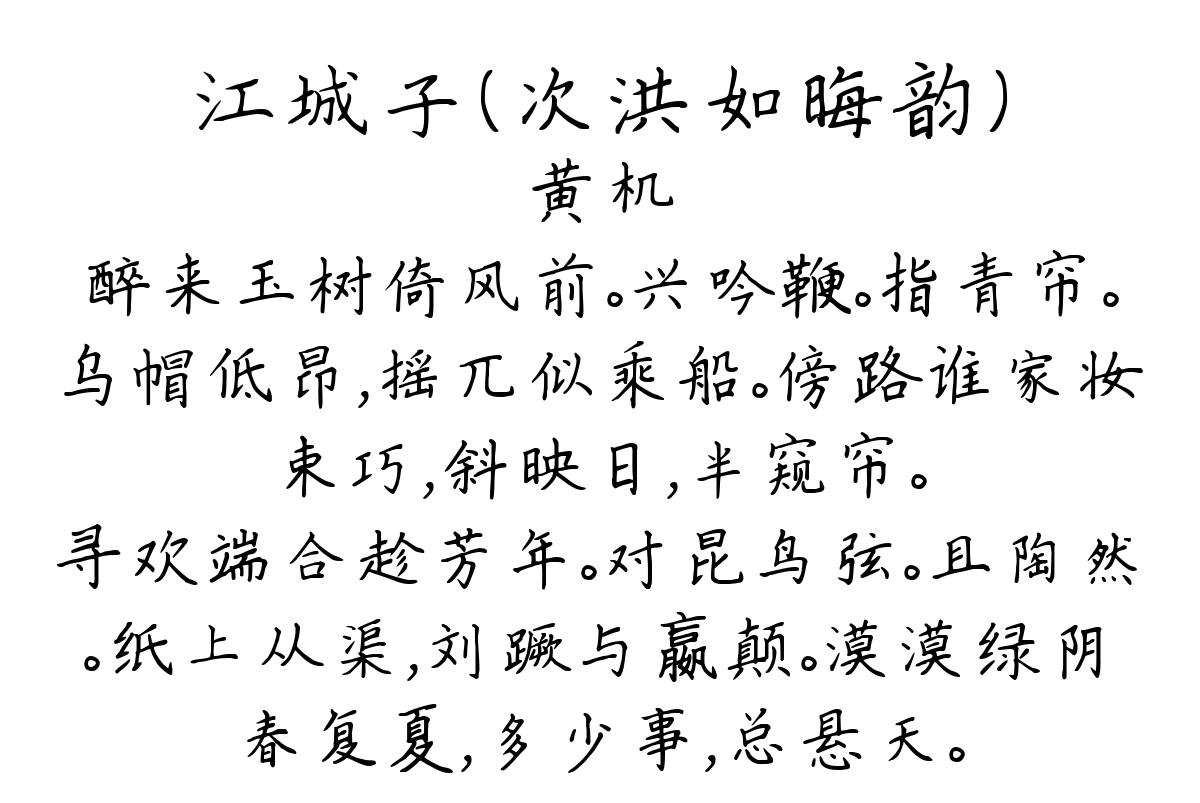 江城子(次洪如晦韵)
黄机
醉来玉树倚风前。兴吟鞭。指青帘。
乌帽低昂,摇兀似乘船。傍路谁家妆
束巧,斜映日,半窥帘。
寻欢端合趁芳年。对昆鸟弦。且陶然
。纸上从渠,刘蹶与嬴颠。漠漠绿阴
春复夏,多少事,总悬天。